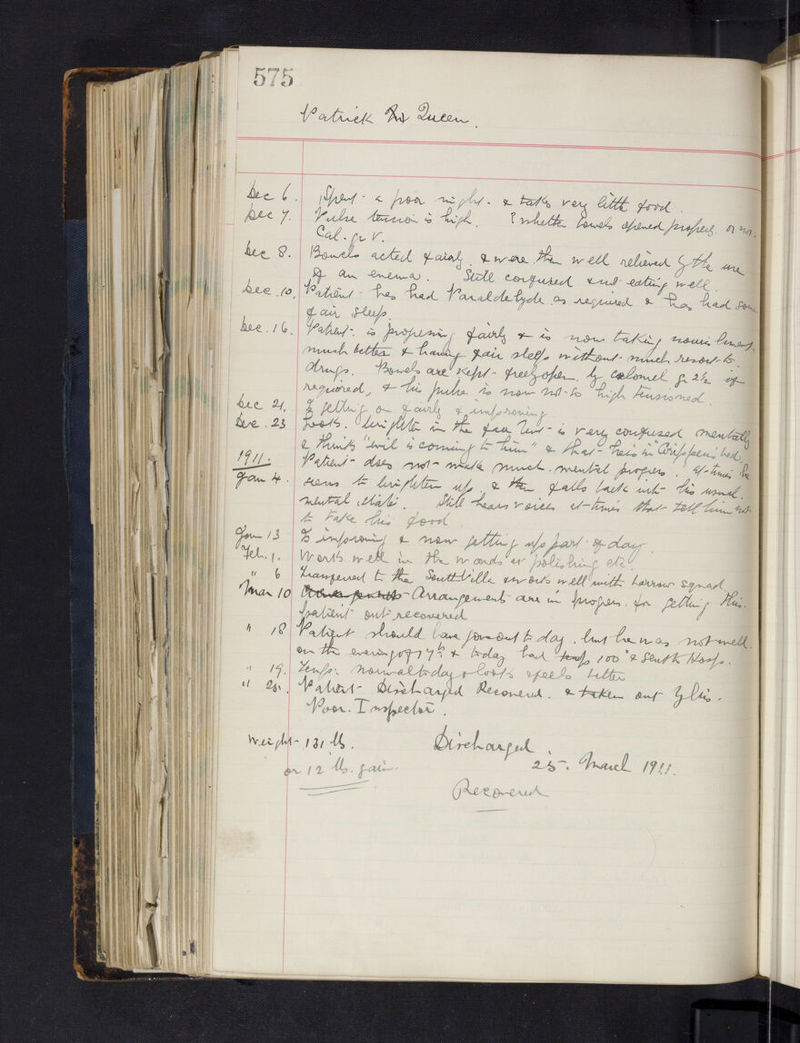 575
Patrick Mc Queen.
Dec 6. Spent a poor night. & takes very little food.
Dec 7. Pulse tension is high. ? whether bowels opened properly or not.
Cal. gr V.
Dec 8. Bowels acted fairly & were then well relieved by the use
of an enema. Still confused and eating well.
Dec. 10. Patient has had Paraldehyde as required & has had some
fair sleep.
Dec. 16. Patient is progressing fairly & is now taking nourishment
much better & having fair sleep without much resort to
drugs. Bowels are kept freely open by calomel gr 2½ if
required, & his pulse is now not so high tensioned.
Dec 21. Is getting on fairly & improving
Dec. 23 Looks brighter in the face but is very confused mentally
& thinks "evil is coming to him" & that he is in Crippen's bed.
1911. Patient does not make much mental progress. at times he
Jan 4. seems to brighten up & then falls back into his usual
mental state. Still hears voices at times that tell him not
to take his food
Jan 13 Is improving & now getting up part of day.
Feb. 1. Works well in the wards at polishing etc.
" 6 Transferred to the South Villa & works well with barrow squad.
Mar 10 Arrangements are in progress for getting this
patient out recovered
" 18 Patient should have gone out to day. but he was not well
on the evening of 17th & today had temp 100° & sent to Hosp.
" 19. Temp. normal today & looks & feels better
" 25. Patient Discharged Recovered. & taken out by his
Poor. Inspector.
Weight 131 lbs.
or 12 lbs. gain.
Discharged.
25. March 1911.
Recovered